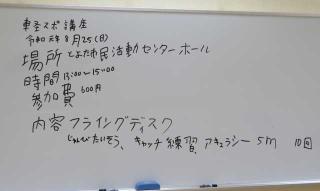 軽スポ講座
令和元年8月25(日)
場所 とよた市民活動センターホール
時間 13:00〜15:00
参加費 600円
内容 フライングディスク
じゅんびたいそう、キャッチ練習、アキュラシー5m 10回